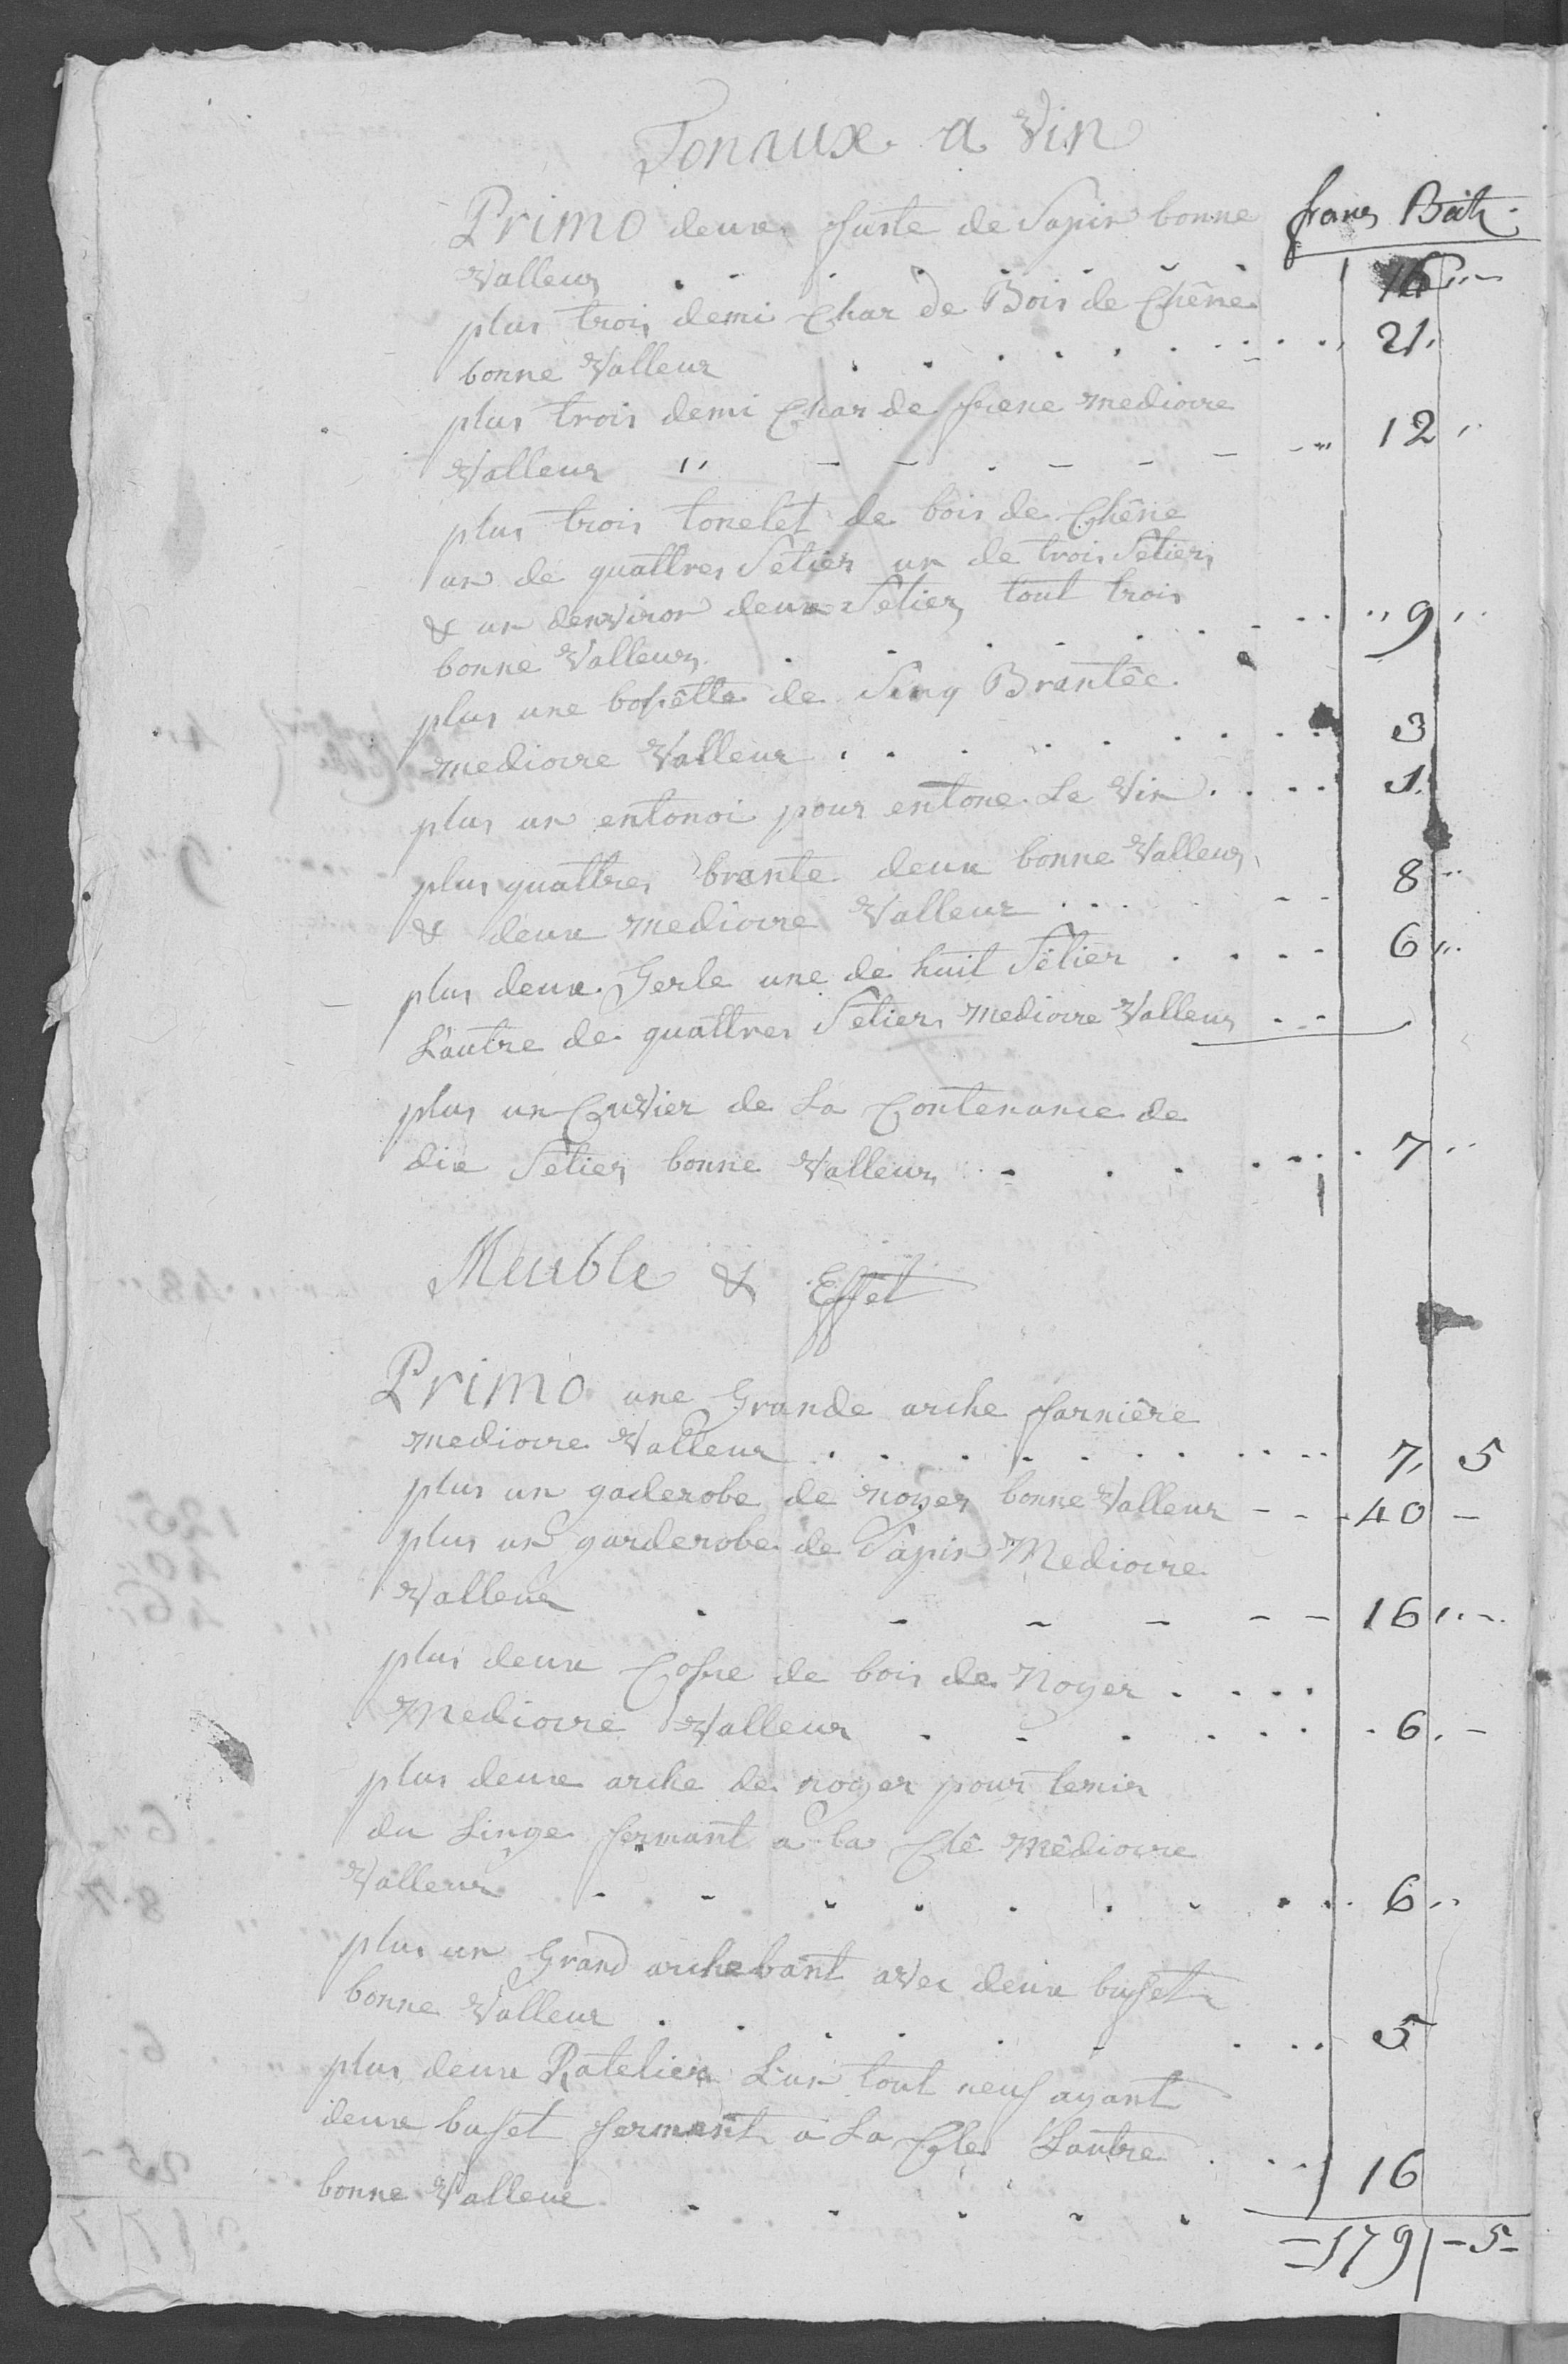 Tonaux a Vin
francs Batz
Primo deux fuste de Sapin bonne
Valleur 16
plus trois demi Char de Bois de Chêne
bonne Valleur 21
plus trois demi Char de frene mediocre
Valleur 12
plus trois tonelet de bois de Chêne
un de quattres Setier un de trois Setiers
& un denviron deux Setier tout trois
bonne Valleurs 9
plus une bossêtte de Sinq Brantêe
mediocre Valleur 3
plus un entonoi pour entone Le Vin 1
plus quattres brante deux bonne Valleur
& deux mediocre Valleur 8
plus deux Gerle une de huit Setier 6
L'autre de quattres Setiers mediocre Valleur
plus un Cuvier de La Contenance de
dix Setier bonne Valleur 7
Meuble & Effet
Primo une Grande arche farnière
mediocre Valleur 7 5
plus un gaderobe de noyer bonne Valleur 40
plus un garderobe de Sapin Mediocre
Valleur 16
plus deux Cofre de bois de Noyer
Mediocre Valleur 6
plus deux arche de noyer pour tenir
du Linge fermant a la Clê Mêdiocre
Valleur 6
plus un Grand archebant avec deux bufet
bonne Valleur 5
plus deux Ratelier L'un tout neuf ayant
deux bufet fermant à La Cle L'autre
bonne Valleur 16
= 179 - 5 -